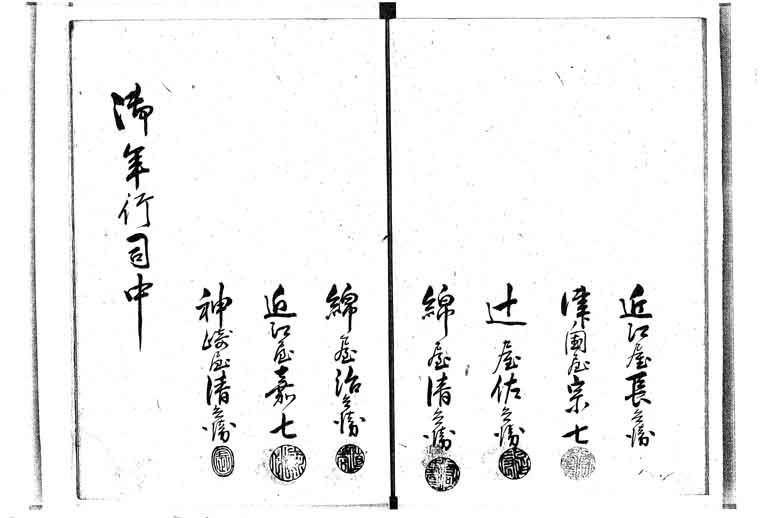 近江屋長兵衛
津国屋宗七
辻屋佐兵衛
綿屋清兵衛
綿屋治兵衛
近江屋嘉七
神崎屋清兵衛
御年行司中